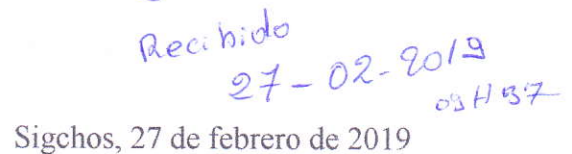 Recibido
27-02-2019
09H37
Sigchos, 27 de febrero de 2019